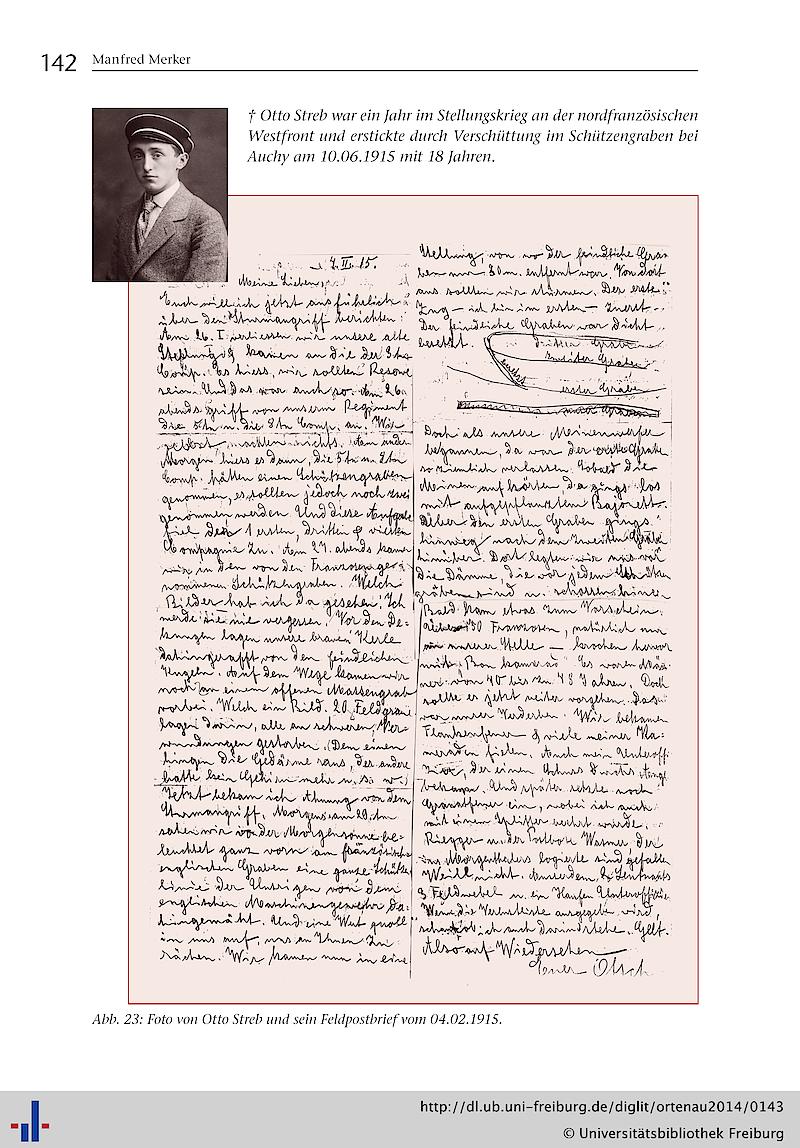 142 Manfred Merker
† Otto Streb war ein Jahr im Stellungskrieg an der nordfranzösischen
Westfront und erstickte durch Verschüttung im Schützengraben bei
Auchy am 10.06.1915 mit 18 Jahren.
4.II.15.
Meine Lieben,
Euch will ich jetzt ausführlich
über den Sturmangriff berichten:
Am 26. I. verliessen wir unsere alte
Stellung & kamen an die der 3ten
Comp. Es hiess, wir sollten Reserve
sein. Und das war auch so. Am 26.
abends griff von unserm Regiment
die 5te u. die 8te Comp. an. Wir
machten nichts. Am andern
Morgen hiess es dann, die 5te u. 8te
Comp. hätten einen Schützengraben
genommen, es sollten jedoch noch zwei
genommen werden. Und diese Aufgabe
fiel der 1 ersten, dritten & vierten
Compagnie zu. Am 27. abends kamen
wir in den von den Franzosen ge-
nommenen Schützengraben. Welch
Bilder hab ich da gesehen! Ich
werde sie nie vergessen. Vor den De-
ckungen lagen unsere braven Kerle
dahingerafft von den feindlichen
Kugeln. Auf dem Wege kamen wir
noch an einem offenen Massengrab
vorbei. Welch ein Bild. 20 Feldgraue
lagen darin, alle an schweren Ver-
wundungen gestorben. (Dem einen
hingen die Gedärme raus, der andere
hatte kein Gehirn mehr u. s. w.)
Jetzt bekam ich Ahnung von dem
Sturmangriff. Morgens am
sahen wir von der Morgensonne be-
leuchtet ganz vorn am französisch
englischen Graben eine ganze Schützen
linie der Unsrigen von dem
englischen Maschinengewehr da-
hingemäht. Und eine Wut groll
in uns auf, uns an Ihnen zu
rächen. Wir kamen nun in eine
Stellung, von wo der feindliche Gra-
ben nur 30m. entfernt war. Von dort
aus sollten wir stürmen. Der erste
Zug – ich bin im ersten – zuerst.
Der feindliche Graben war dicht
besetzt.
dritter Graben
zweiter Graben
erster Graben
Graben
Doch als unsere Minenwerfer
begannen, da war der erste Graben
so ziemlich verlassen. Sobald die
Minen aufhörten, da gings los
mit aufgepflanztem Bajonett.
Über den ersten Graben gings
hinweg nach dem zweiten Graben
hinüber. Dort legten wir uns vor
die Dämme, die vor jedem Schützen
gräben sind u. schossen hinein.
Bald kam etwas zum Vorschein:
30 Franzosen, natürlich nur
an unserer Stelle – krochen hervor
Es waren Män-
ner von 40 bis zu 48 Jahren. Doch
sollte es jetzt weiter vorgehen. Das
war unser Verderben. Wir bekamen
Flankenfeuer & viele meiner Ka-
meraden fielen. Auch mein Unteroffi-
zier, der einen Schuss durchs Auge
bekam. Und später setzte noch
Granatfeuer ein, wobei ich auch
mit einem Splitter beehrt wurde.
Riegger u. der Postbote Wasmer, der
ins Morgenthalers logierte sind gefallen
Weill nicht. Ausserdem 2 Leutnants
3 Feldwebel u. ein Haufen Unteroffiziere
Wenn die Verlustliste ausgegeben wird,
schaut ob ich auch darin stehe. Gelt.
Also auf Wiedersehen
Euer Otsch
Abb. 23: Foto von Otto Streb und sein Feldpostbrief vom 04.02.1915.
http://dl.ub.uni-freiburg.de/diglit/ortenau2014/0143
© Universitätsbibliothek Freiburg